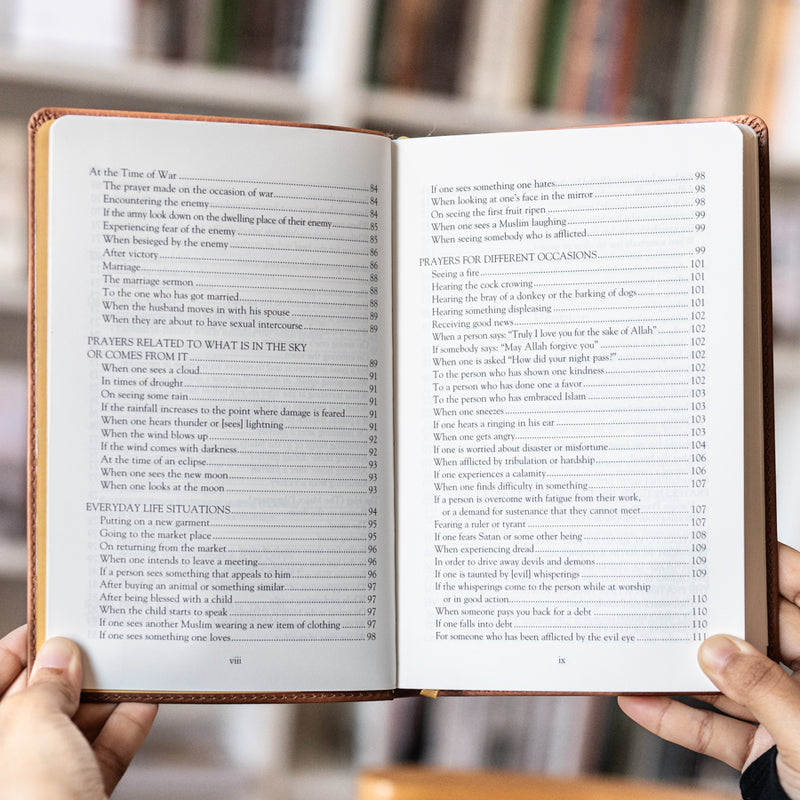 At the Time of War 84
The prayer made on the occasion of war 84
Encountering the enemy 84
If the army look down on the dwelling place of their enemy 85
Experiencing fear of the enemy 85
When besieged by the enemy 86
After victory 86
Marriage 86
The marriage sermon 88
To the one who has got married 88
When the husband moves in with his spouse 89
When they are about to have sexual intercourse 89
PRAYERS RELATED TO WHAT IS IN THE SKY
OR COMES FROM IT 89
When one sees a cloud 91
In times of drought 91
On seeing some rain 91
If the rainfall increases to the point where damage is feared 91
When one hears thunder or [sees] lightning 91
When the wind blows up 92
If the wind comes with darkness 92
At the time of an eclipse 93
When one sees the new moon 93
When one looks at the moon 93
EVERYDAY LIFE SITUATIONS 94
Putting on a new garment 95
Going to the market place 95
On returning from the market 96
When one intends to leave a meeting 96
If a person sees something that appeals to him 96
After buying an animal or something similar 97
After being blessed with a child 97
When the child starts to speak 97
If one sees another Muslim wearing a new item of clothing 97
If one sees something one loves 98
viii
If one sees something one hates 98
When looking at one's face in the mirror 98
On seeing the first fruit ripen 98
When one sees a Muslim laughing 99
When seeing somebody who is afflicted 99
PRAYERS FOR DIFFERENT OCCASIONS 99
Seeing a fire 101
Hearing the cock crowing 101
Hearing the bray of a donkey or the barking of dogs 101
Hearing something displeasing 101
Receiving good news 101
When a person says: "Truly I love you for the sake of Allah" 102
If somebody says: "May Allah forgive you" 102
When one is asked "How did your night pass?" 102
To the person who has shown one kindness 102
To a person who has done one a favor 102
To the person who has embraced Islam 102
When one sneezes 103
If one hears a ringing in his ear 103
When one gets angry 103
If one is worried about disaster or misfortune 104
When afflicted by tribulation or hardship 106
If one experiences a calamity 106
When one finds difficulty in something 107
If a person is overcome with fatigue from their work,
or a demand for sustenance that they cannot meet 107
Fearing a ruler or tyrant 107
If one fears Satan or some other being 108
When experiencing dread 109
In order to drive away devils and demons 109
If one is taunted by [evil] whisperings 109
If the whisperings come to the person while at worship
or in good action 110
When someone pays you back for a debt 110
If one falls into debt 110
For someone who has been afflicted by the evil eye 111
ix